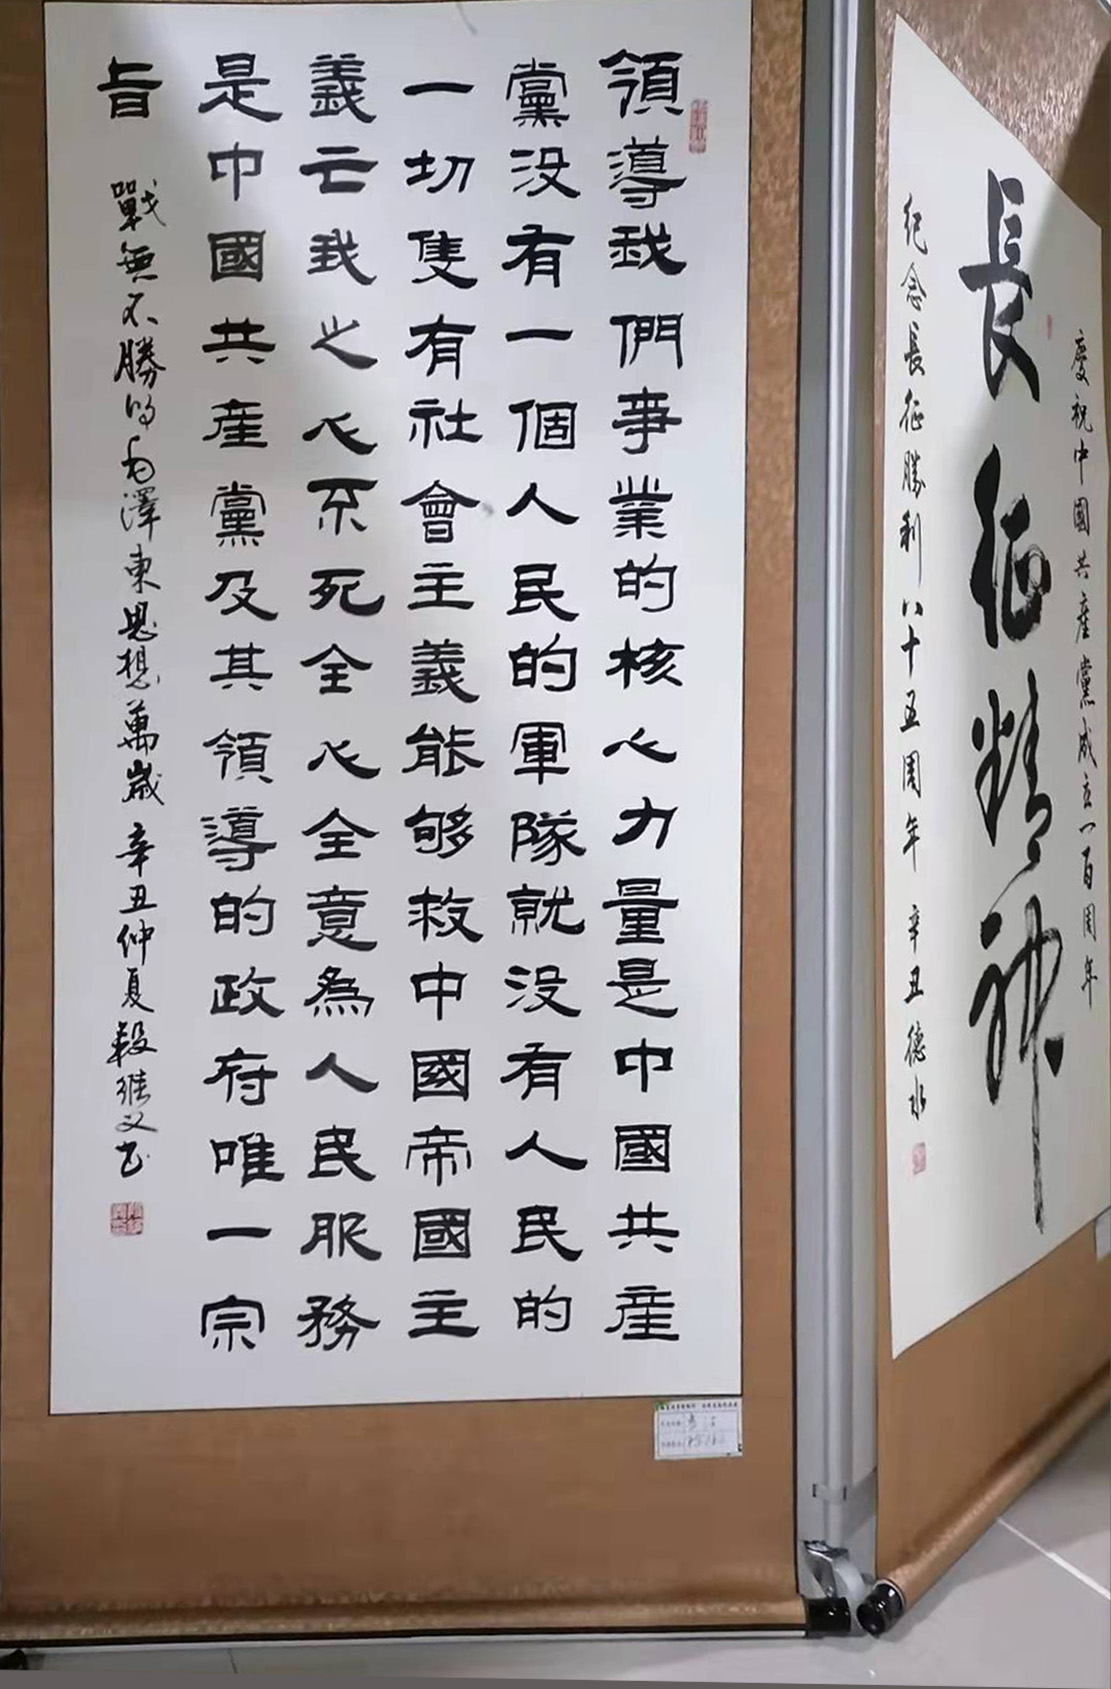 領導我們事業的核心力量是中國共產
黨没有一個人民的軍隊就没有人民的
一切隻有社會主義能够救中國帝國主
義亡我之心不死全心全意為人民服務
是中國共產黨及其領導的政府唯一宗
旨
戰無不勝的毛澤東思想萬歲 辛丑仲夏 義书
慶祝中國共產黨成立一百周年
長征精神
紀念長征勝利八十五周年 辛丑德水